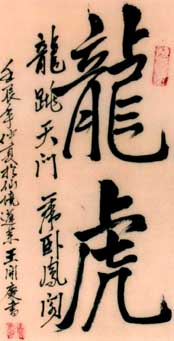 龍虎
龍跳天门 席卧鳳阁
壬辰年仲夏於仙境蓬莱王
書